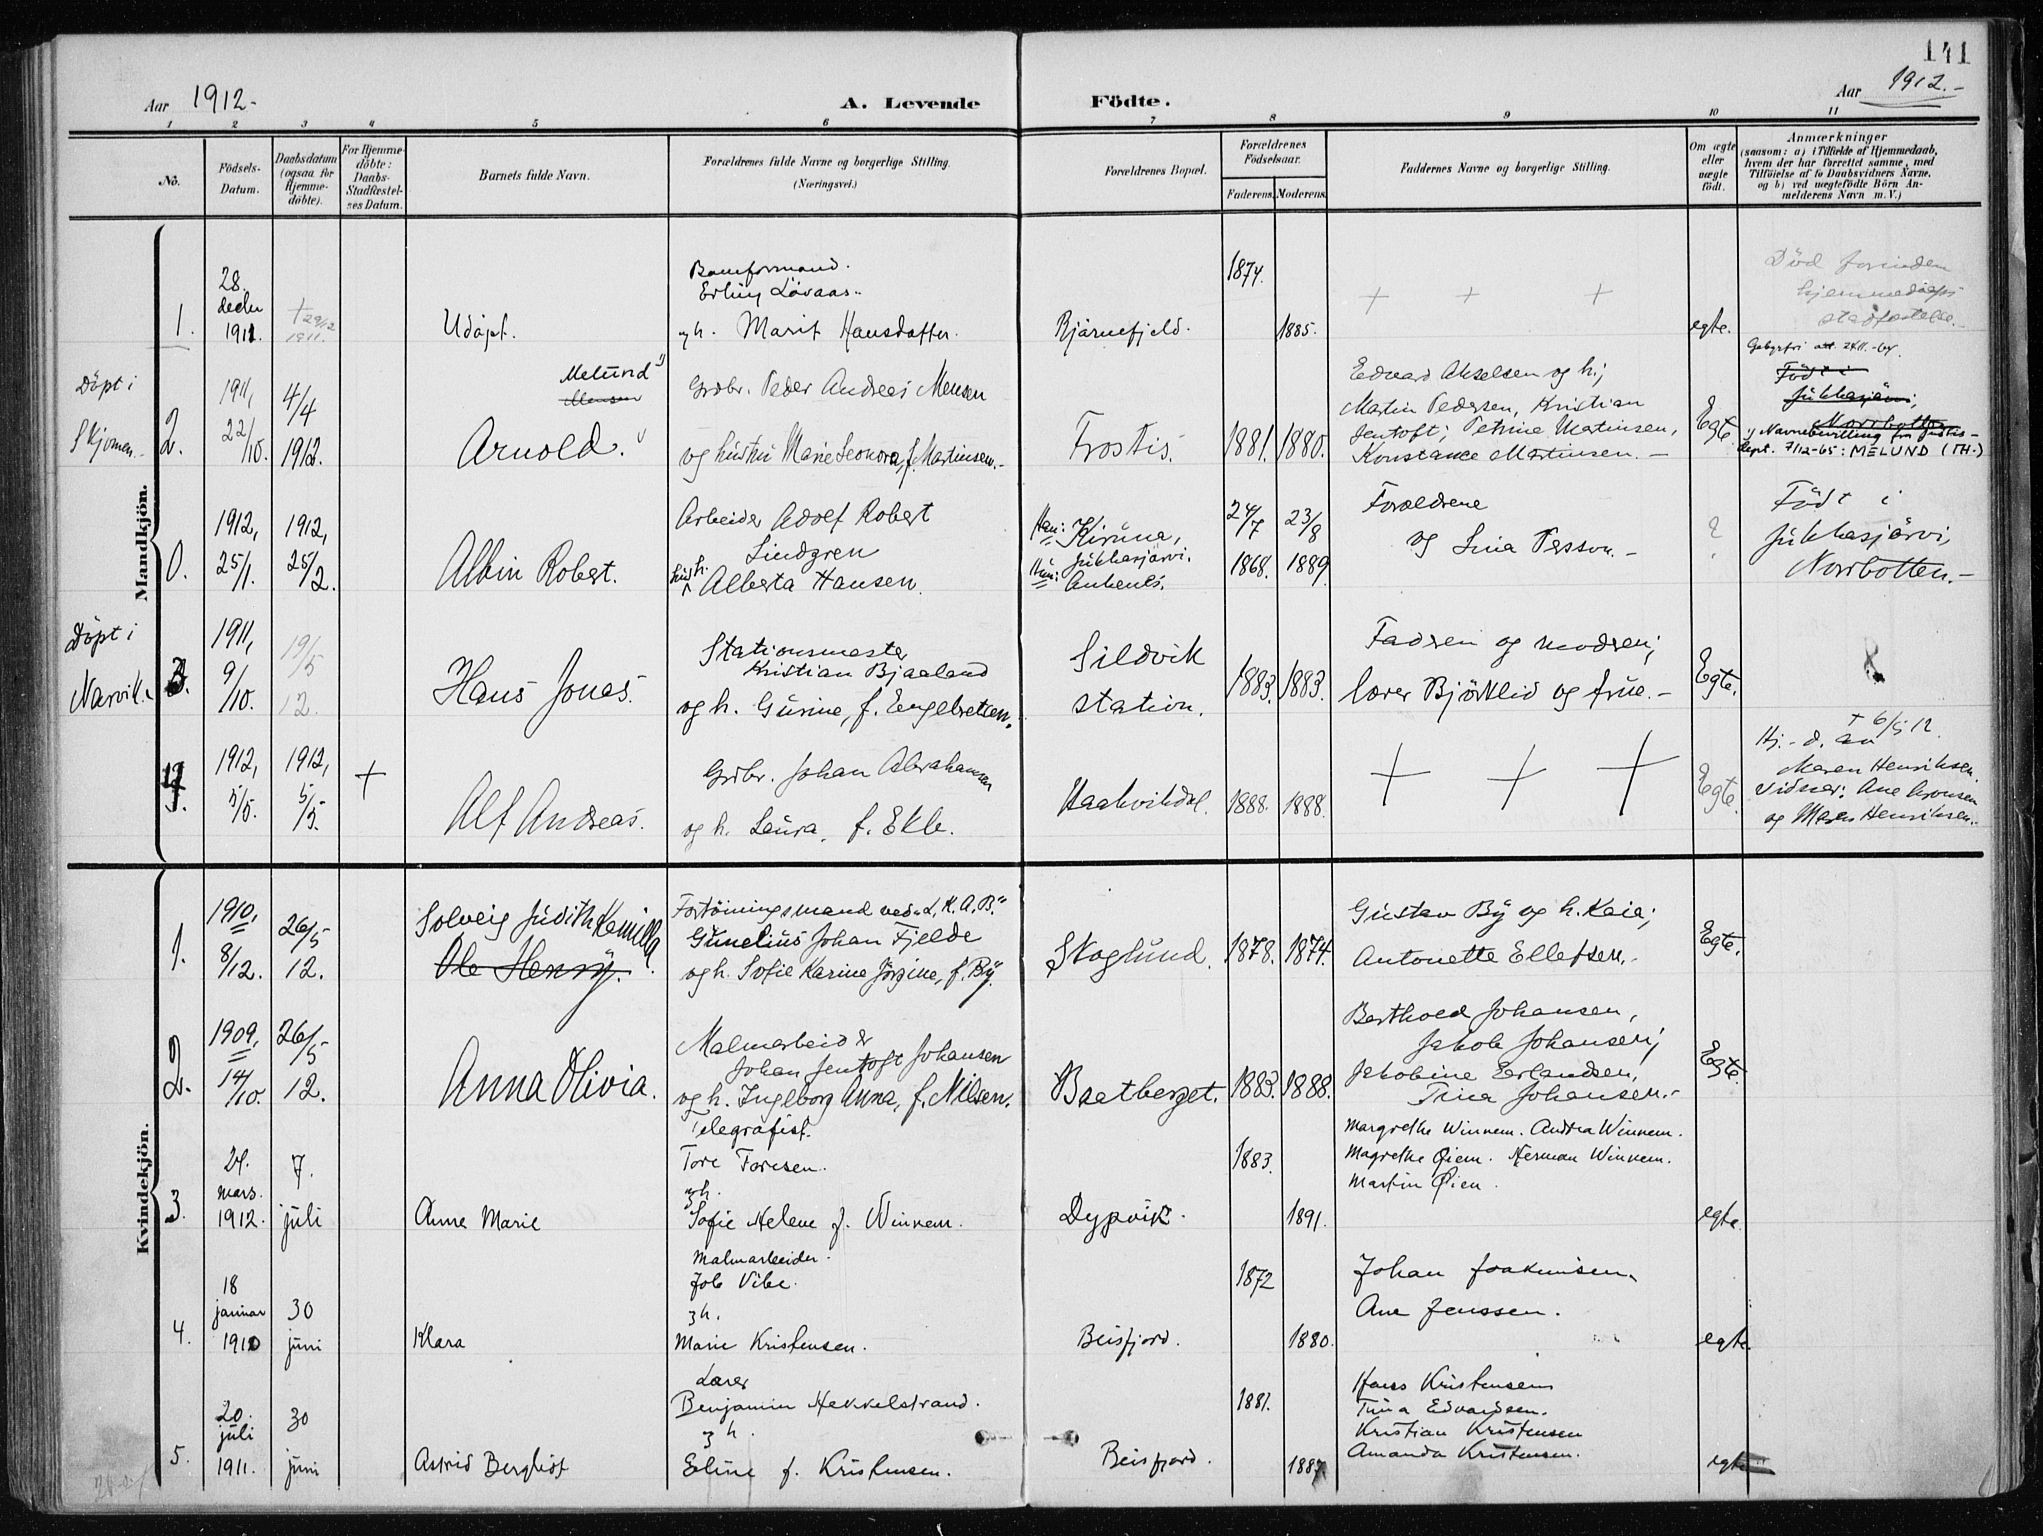 141
Aar 1912.-
A. Levende Födte.
Aar 1912.-
1 2 3 4 5 6 7 8 9 10 11
No.
Födsels-Datum.
Daabsdatum (ogsaa for Hjemme-döbte).
For Hjemme-döbte: Daabs-Stadfæstel-ses Datum.
Barnets fulde Navn.
Forældrenes fulde Navne og borgerlige Stilling.
(Næringsvei.)
Forældrenes Bopæl.
Forældrenes Födselsaar.
Faderens. Moderens.
Faddernes Navne og borgerlige Stilling.
Om ægte eller uægte födt.
Anmærkninger
(saasom: a) i Tilfælde af Hjemmedaab,
hvem der har forrettet samme, med
Tilföielse af to Daabsvidners Navne,
og b) ved uægtefödte Börn An-
melderens Navn m.V.)
Mandkjön.
1.
28.
decbr
1911.
+ 29/12
1911.
Udöpt.
Erling Lövaas.
og h. Marit Hansdatter.
Bjørnefjeld.
1874.
1885.
+ + +
egte.
Död forinden
hjemmedaabs
stadfæstelse.
Döpt i
Skjomen.
2.
1911,
22/10.
4/4
1912.
Melund 1)
Mensen
Arnold.
Grdbr. Peder Andreas Mensen
og hustru Marie Leonora, f. Martinsen.-
Frostis.
1881. 1880.
Edvard Akselsen og h.;
Martin Pedersen, Kristian
Jentoft; Petrine Martinsen,
Konstance Martinsen. -
Egte.
Gebyrfri att. 24/11.-64.
Födt i
Jukkasjärvi,
Norrbotten
1) Navnebevilling fra Justis-
dept. 7/12-65: MELUND (TH-)
0.
1912,
25/1.
1912,
25/2.
Albin Robert.
Arbeider Adolf Robert
Lindgren
h. Alberta Hansen.
Han: Kiruna,
Jukkasjärvi.
Hun: Ankenes.
24/7
1868.
23/8
1889
Forældrene
og Lina Persson.-
?
Födt i
Jukkasjärvi,
Norrbotten.-
Döpt i
Narvik.
3.
1911,
9/10.
19/5
12.
Hans Jonas.
Stationsmester
Kristian Bjaaland
og h. Gurine, f. Engebretsen.
Sildvik
station.
1883. 1883.
Fadren og modren;
lærer Björklid og frue.-
Egte.
4.
1912,
5/5.
1912,
5/5.
+
Alf Andreas.
Grdbr. Johan Abrahamsen
og h. Laura, f. Ekle.
Haakvikdal.
1888. 1888.
+ + +
Egte.
+ 6/5 12.
Hj.-d. av
Maren Henriksen.
Vidner: Ane Aronsen
og Maren Henriksen.
Kvindekjön.
1.
1910,
8/12.
26/5
12.
Solveig Judith Kamilla.
Ole Henry.
Fortöiningsmand ved "L.K.A.B."
Gunelius Johan Fjelde
og h. Sofie Karine Jörgine, f. By.
Skoglund.
1878. 1874.
Gustav By og h. Kaia;
Antonette Ellefsen.
Egte.
2.
1909,
14/10.
26/5
12.
Anna Olivia.
Malmarbeider
Johan Jentoft Johansen
og h. Ingeborg Anna, f. Nilsen.
Baatberget.
1883. 1888.
Berthoed Johansen,
Jakob Johansen;
Jakobine Erlandsen,
Tina Johansen.-
Egte.
3.
24.
mars.
1912.
7.
juli
Anne Marie
Telegrafist.
Tore Foresen.
og h.
Sofie Helene f. Winnem.
Dypvik.
1883.
1891.
Margrethe Winnem. Andrea Winnem.
Magrethe Øiem. Herman Winnem.
Martin Øien.
egte.
4.
18
januar
1910
30
juni
Klara
Malmarbeider.
Job Vibe.
og h.
Marie Kristensen.
Beisfjord.
1872
1880.
Johan Joakimsen.
Ane Jenssen.
egte.
5.
20.
juli
1911.
30
juni
Astrid Bergliot
Lærer
Benjamin Hekkelstrand.
og h.
Eline f. Kristensen.
Beisfjord.
1881.
1887
Hans Kristensen
Tina Edvardsen.
Kristian Kristensen
Amanda Kristensen.
egte